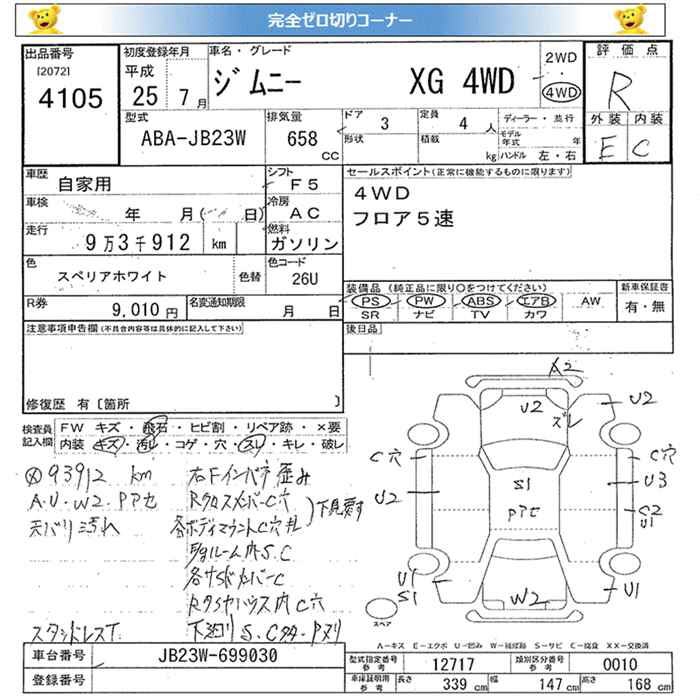 完全ゼロ切りコーナー
出品番号
[2072]
4105
初度登録年月
平成
25年 7月
車名・グレード
ジムニー XG 4WD
2WD
・
4WD
評価点
R
外装 内装
E C
型式
ABA-JB23W
排気量
658
CC
ドア 3
形状
定員 4 人
積載 kg
ディーラー・並行
モデル年式 年
ハンドル 左・右
車歴
自家用
シフト
F5
車検
年 月( 日)
冷房
AC
走行
9万3千912 km
燃料
ガソリン
色
スペリアホワイト
色替
色コード
26U
R券
9,010円
名変通知期限
月 日
セールスポイント(正常に機能するものに限ります)
4WD
フロア5速
装備品 (純正品に限り○をつけてください)
PS PW ABS エアB AW
SR ナビ TV カワ
新車保証書
有・無
後日品
注意事項申告欄(不具合内容等は具体的に記入して下さい)
修復歴 有〔箇所 〕
検査員記入欄
FW キズ・飛石・ヒビ割・リペア跡・×要
内装 キズ・汚レ・コゲ・穴・スレ・キレ・破レ
93912 km
A.U.W2.Pアセ
天バリ汚れ
右Fインパネ歪み
RクロスメンバーC穴
各ボディマウントC穴
下見要す
各サイドメンバーC
Rタイヤハウス内C穴
スタッドレスT
下廻りS.C
A2
U2
ズレ
U2
C穴
C穴
S1
Pアセ
U3
U2
C2
U1
U1
S1
W2
U1
スペア
A-キズ E-エクボ U-凹み W-補修跡 S-サビ C-腐食 XX-交換済
車台番号
JB23W-699030
登録番号
型式指定番号 参考
12717
類別区分番号 参考
0010
車庫証明用 参考
長さ 339 cm
幅 147 cm
高さ 168 cm